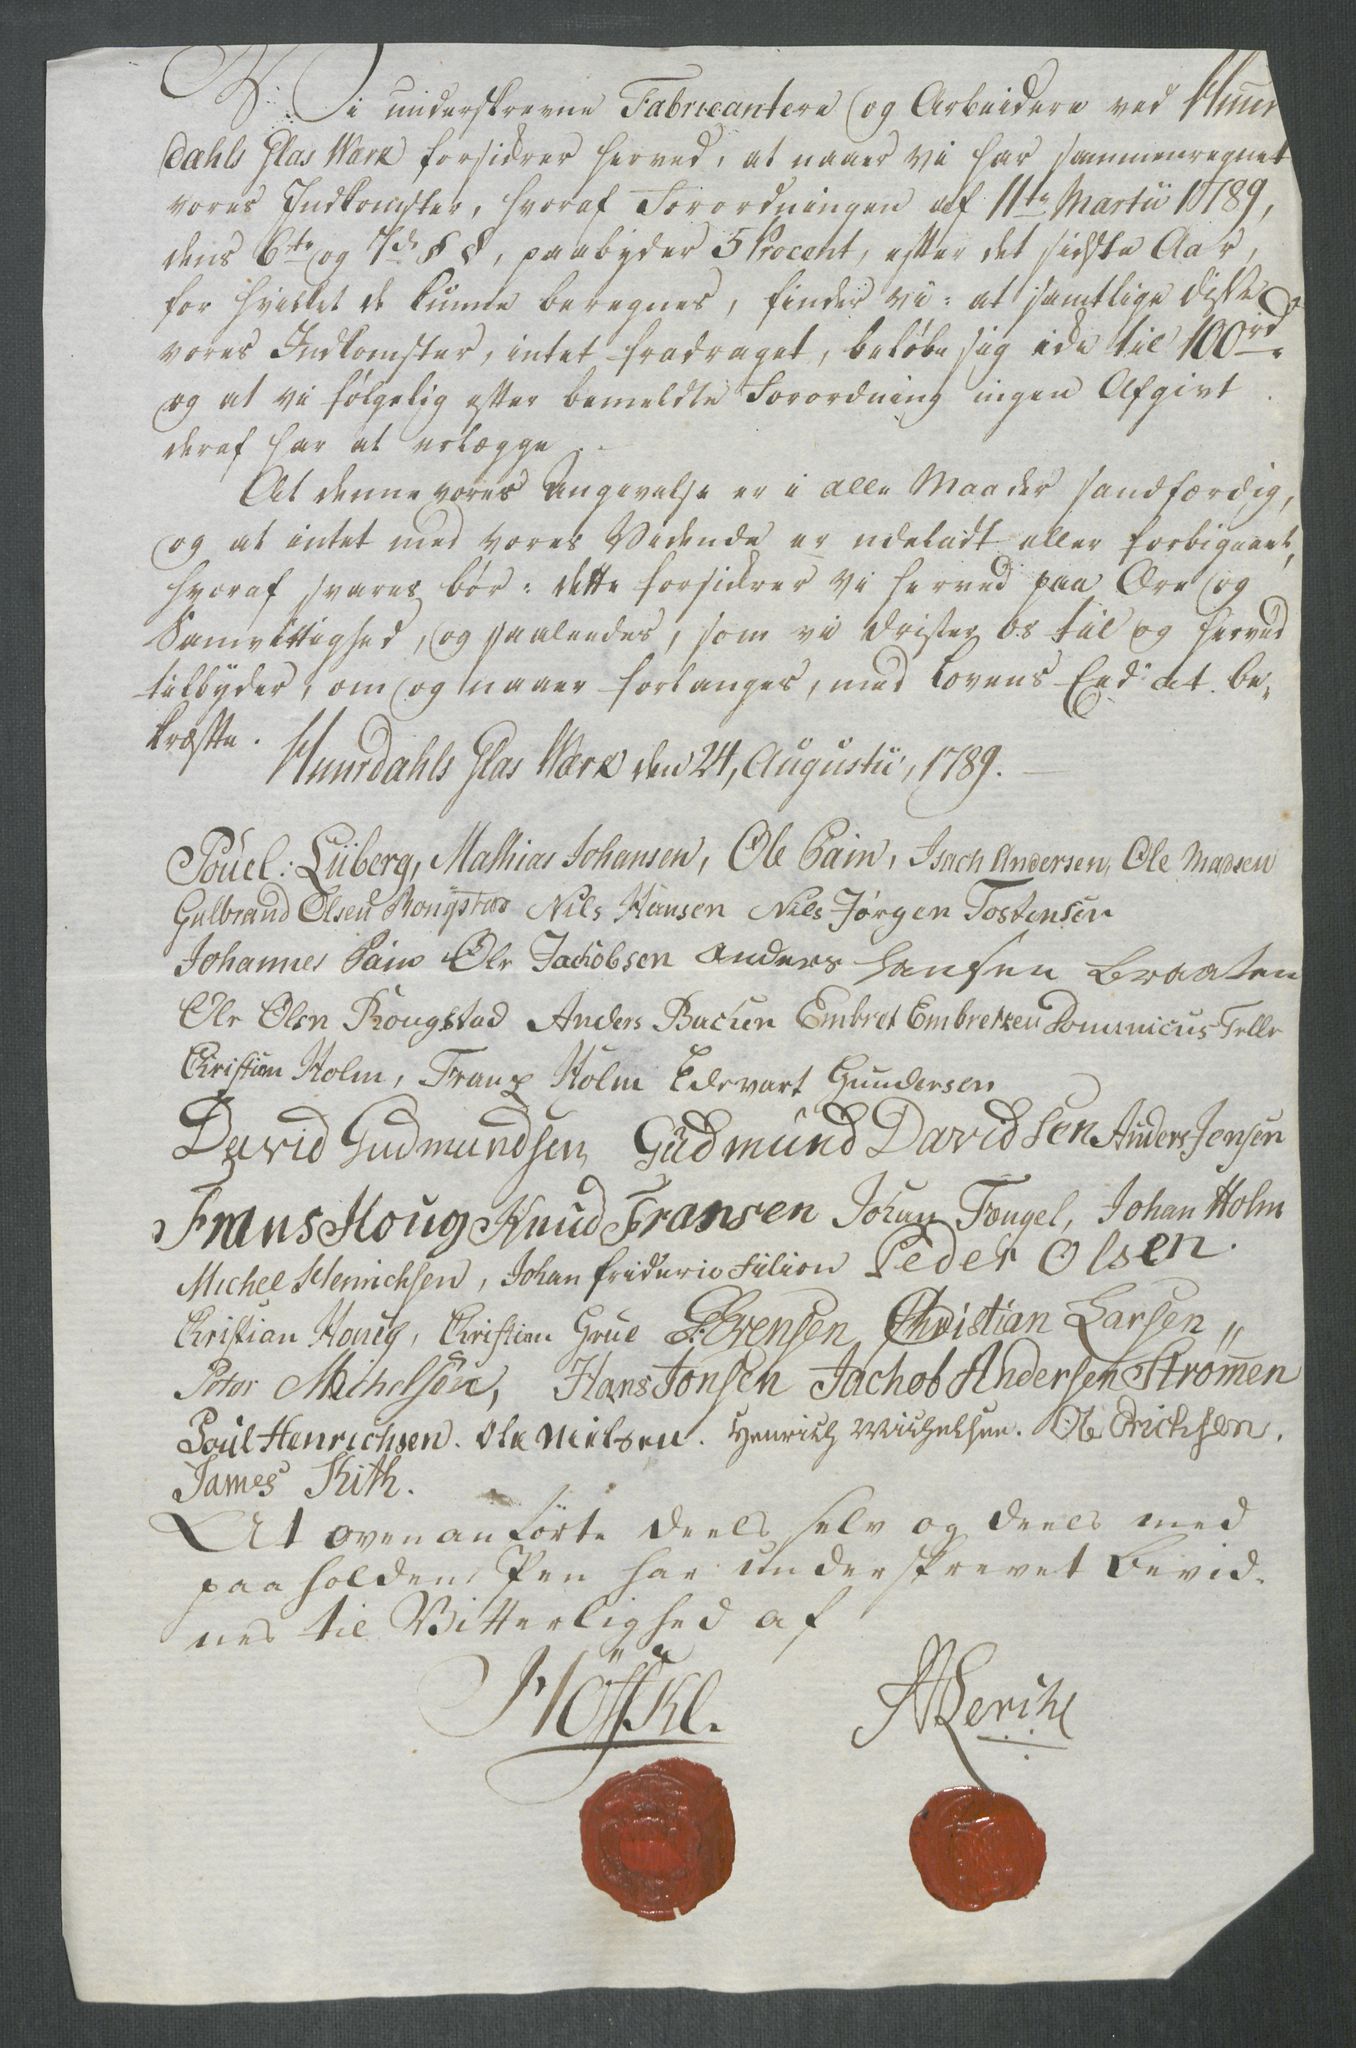 Vi underskrevne Fabricantere og Arbeidere ved Huur
dahls Glas Værk forsikrer herved, at naaer vi har sammenregnet
vores Indkomster, hvoraf Forordningen af 11te Martii 1789,
dens 6te og 7de § §, paabyder 5 Procent, efter det sidste Aar,
for hvilket de kunne beregnes, finder vi: at samtlige disse
vores Indkomster, intet fradraget, beløbe sig icke til 100 rd
og at vi følgelig efter bemeldte Forordning ingen Afgivt
deraf har at erlægge.
At denne vores Angivelse er i alle Maader sandfærdig,
og at intet med vores Vidende er udeladt eller forbigaaet,
hvoraf svares bør: dette forsikrer vi herved paa Ære og
Samvittighed, og saaleedes, som vi drister os til og herved
tilbyder, om og naaer forlanges, med Lovens Eed at be-
kræfte.
Huurdahls Glas Værk den 24, Augustii, 1789.
Pouel: Lüberg, Mathias Johansen, Ole Pain, Isach Andersen, Ole Madsen
Gulbrand Olsen Rongstad Nils Hansen Nils Jørgen Tostensen
Johannes Pain Ole Jachobsen Anders Hansen Braaten
Ole Olsn Rongstad Anders Backen Embret Embretsen Domenicus Telle
Christian Holm, Franz Holm Edevart Gundersen
David Gudmundsen, Gudmund Davidsen Anders Jensen
Frans Houg Knud Fransen Johan Tengel, Johan Holm
Michel Henrichsen, Johan Frideric Filion Peder Olsen.
Christian Houg, Christian Grue S. Evensen, Christian Larsen,,
Peter Michelsen, Hans Jonsen Jachob Andersen Strømen
Poul Henrichsen. Ole Nielsen. Henrich Michelsen. Ole Erichsen.
James Kith.
At ovenanförte deels selv og deels med
paaholden Pen har underskrevet bevid-
nes til Vitterlighed af